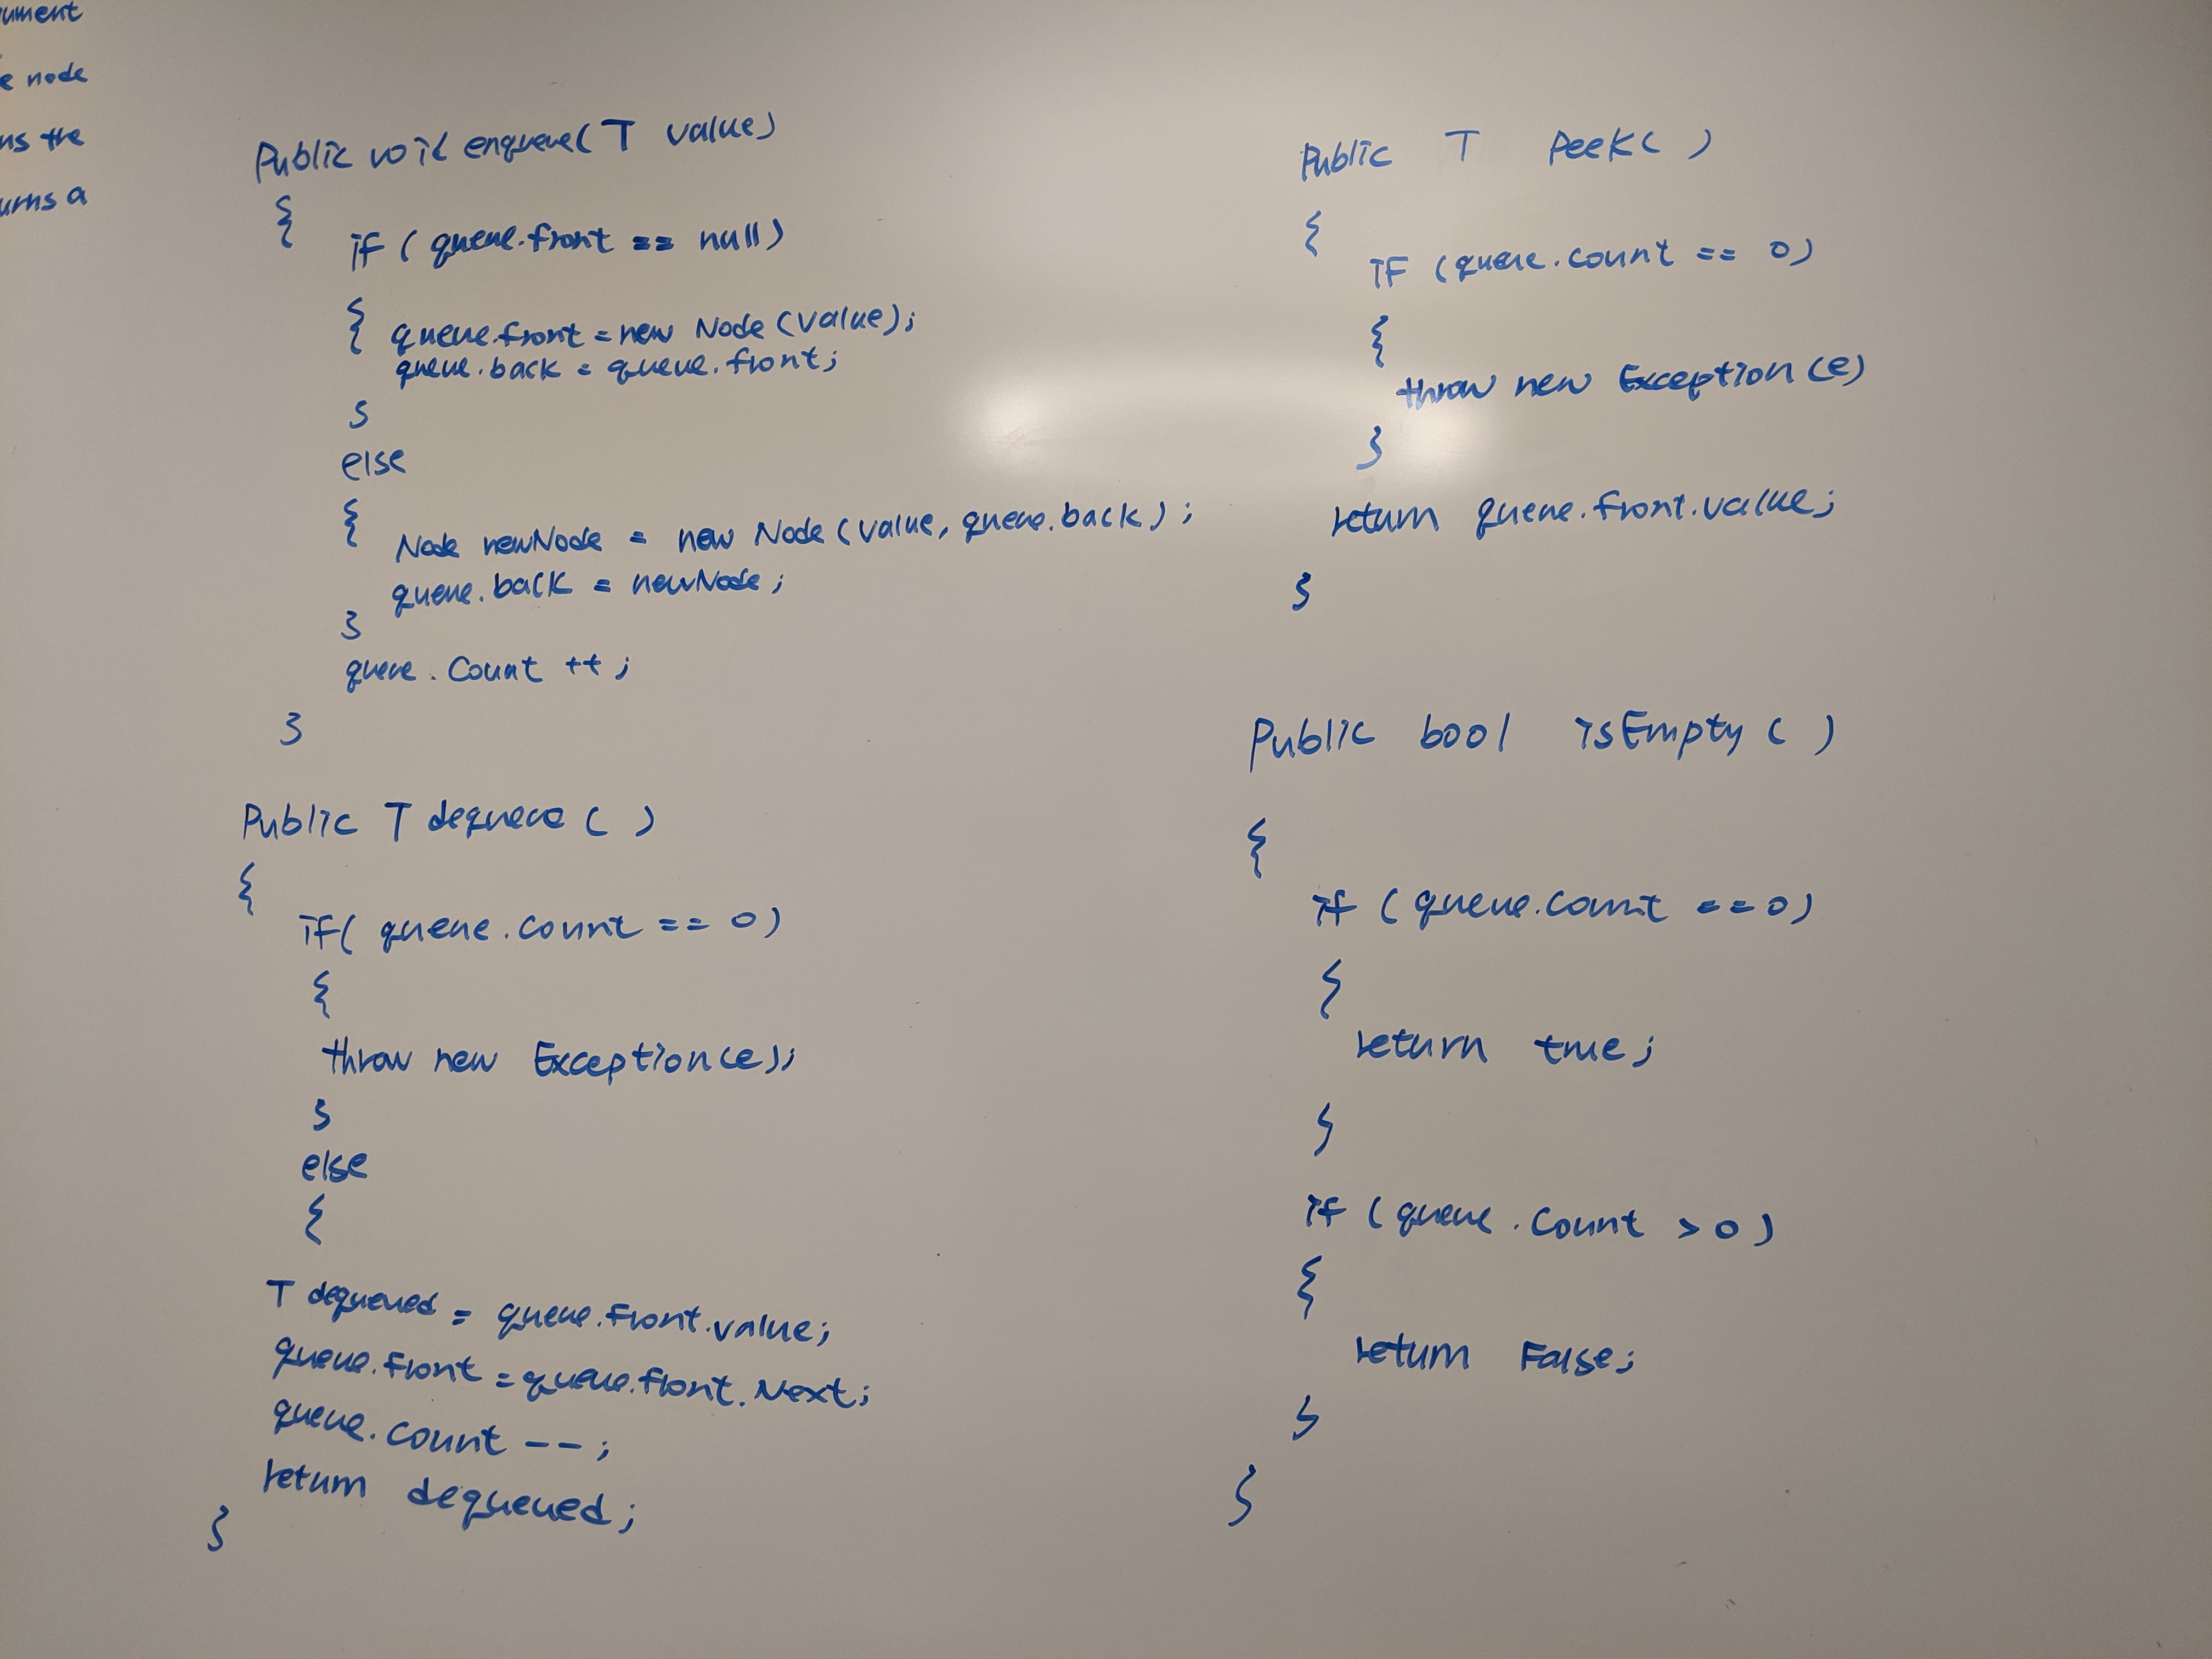 ument
e node
ns the
urns a
Public void enqueue(T value)
{
if (queue.front == null)
{ queue.front = new Node (value);
queue.back = queue.front;
}
else
{
Node newNode = new Node (value, queue.back);
queue.back = newNode;
}
queue.Count ++;
}
Public T dequeue ( )
{
if( queue.Count == 0)
{
throw new Exception(e);
}
else
{
T dequeued = queue.front.value;
queue.front = queue.front.Next;
queue.Count --;
return dequeued;
}
Public T Peek( )
{
if (queue.count == 0)
{
throw new Exception (e)
}
return queue.front.value;
}
Public bool isEmpty ( )
{
if (queue.Count == 0)
{
return true;
}
if (queue.Count > 0)
{
return False;
}
}